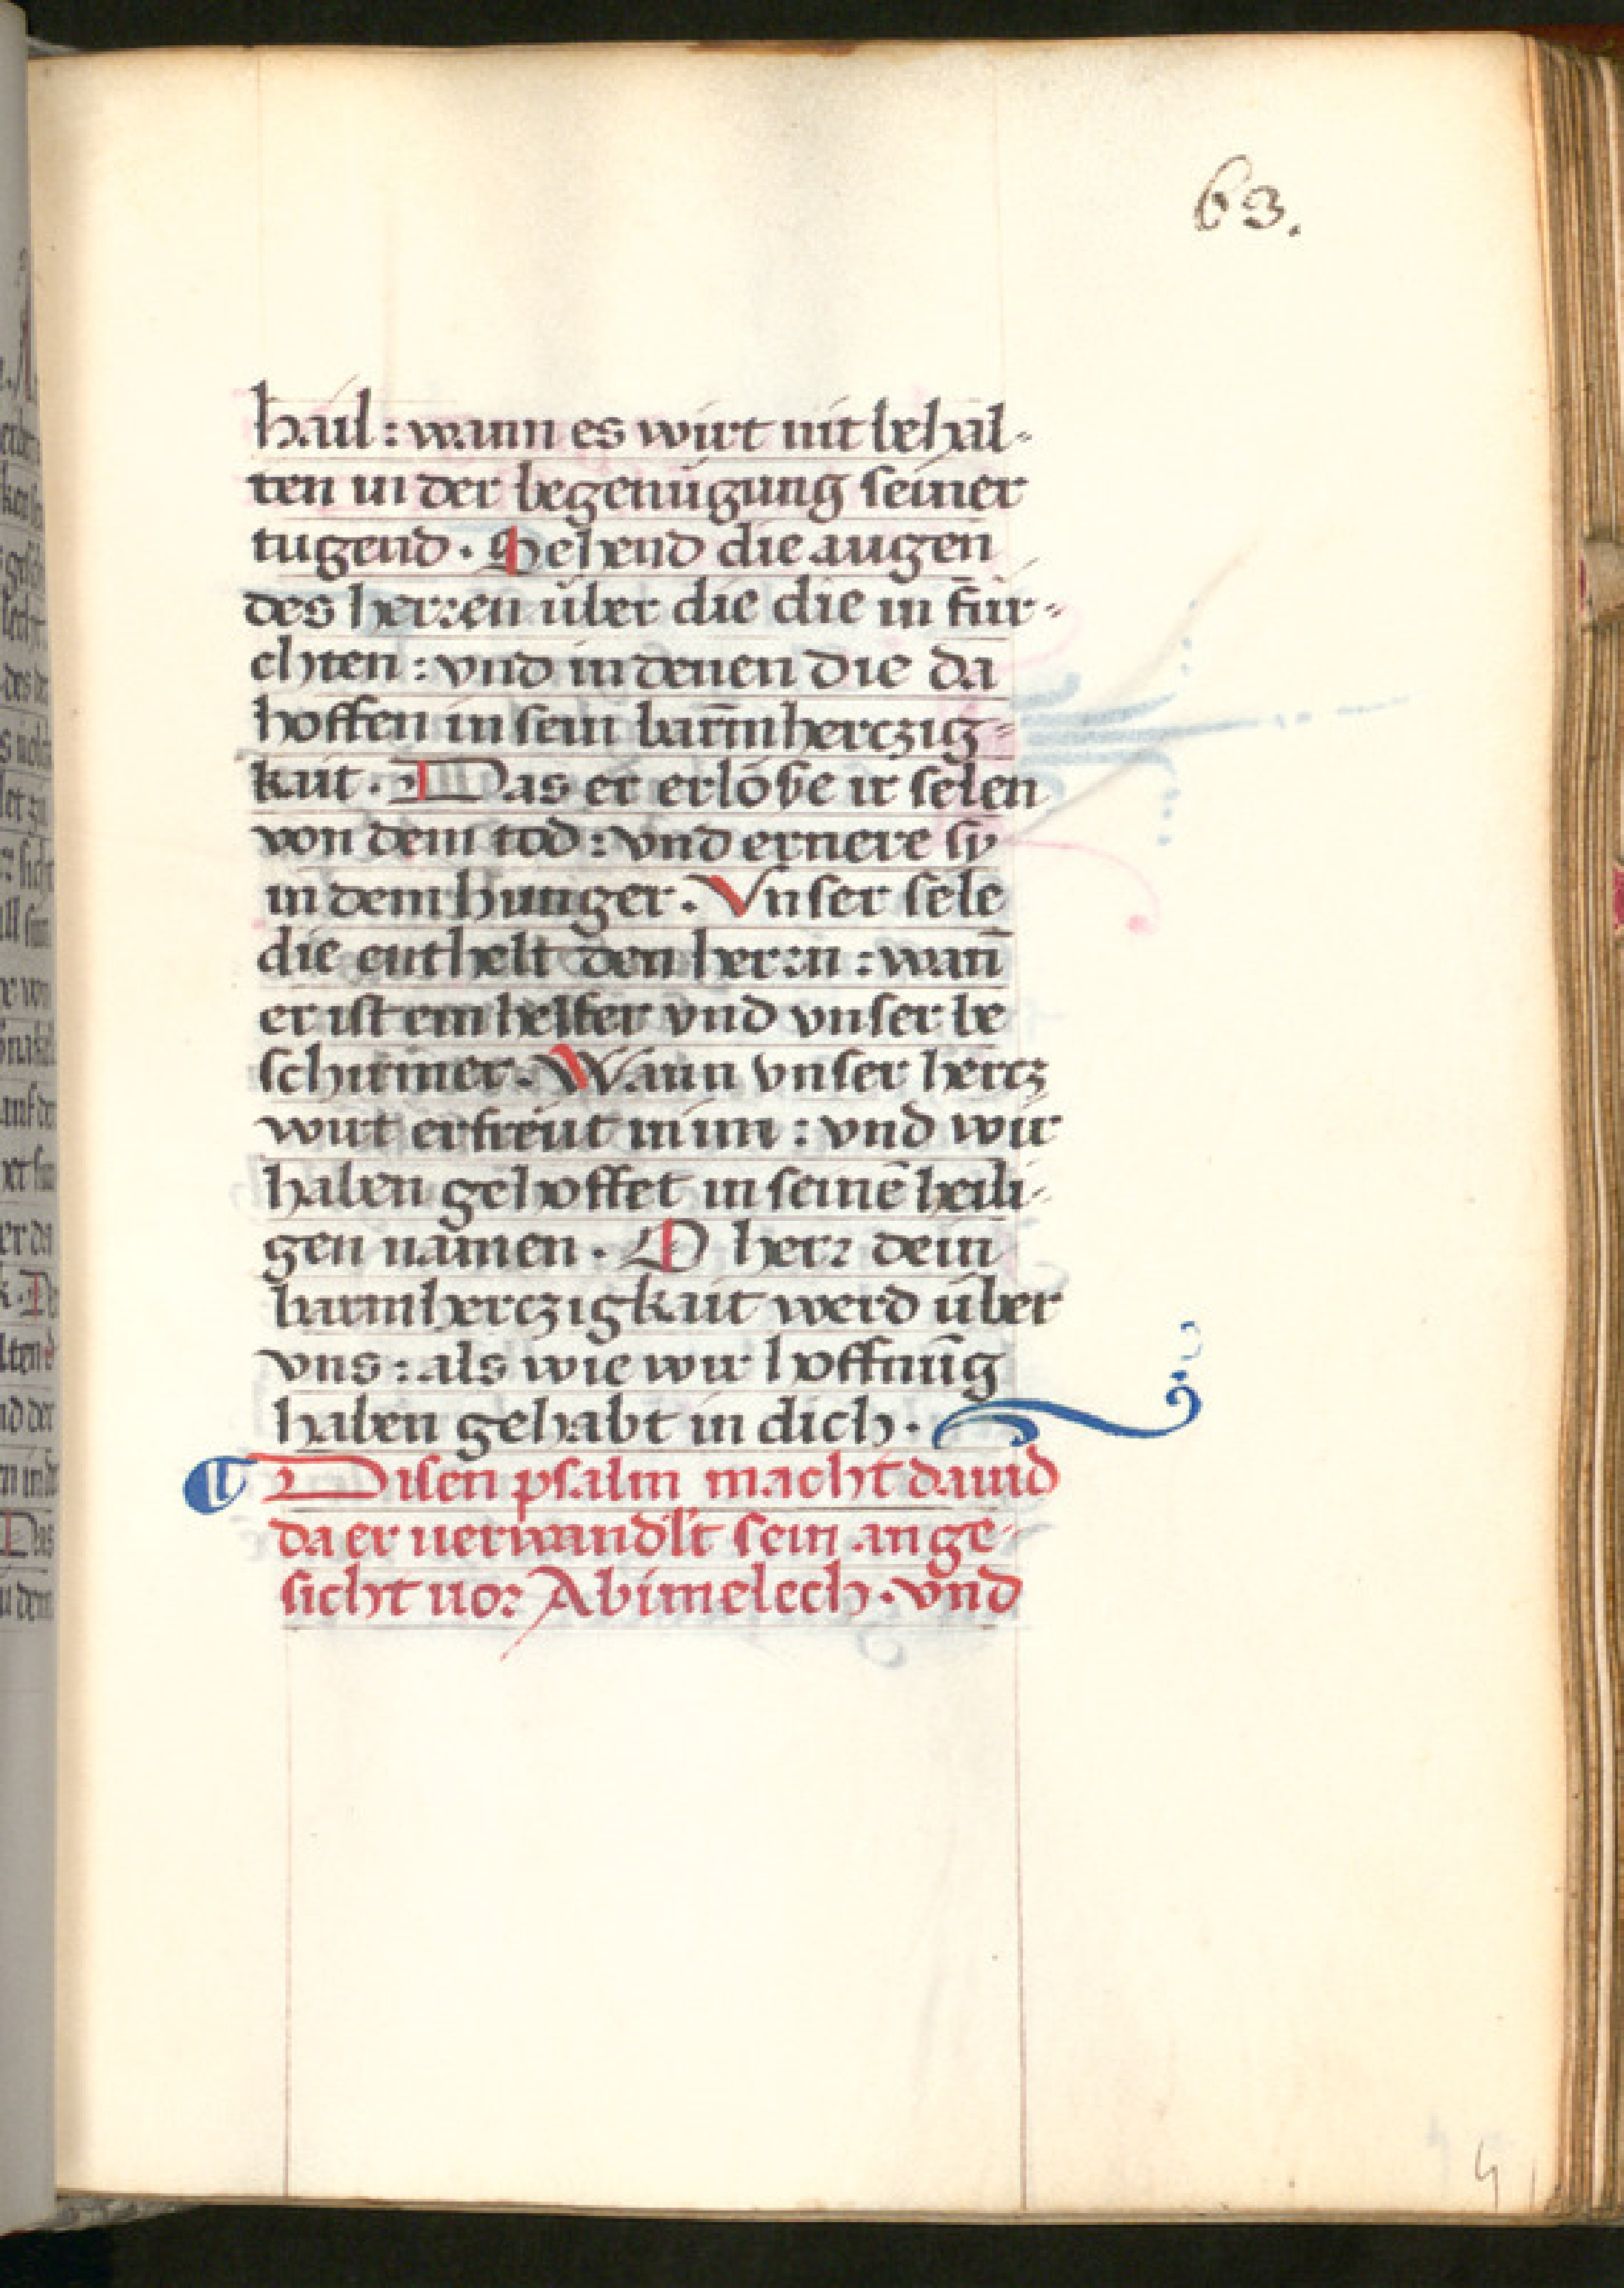 63.
hail : wann es wirt nit behal-
ten in der begenügung seiner
tugend . Sehend die augen
des herren über die die in für-
chten : vnd in denen die da
hoffen in sein barm̄hertzig-
kait . Das er erlöse ir selen
von dem tod : vnd ernere sy
in dem hunger . Vnser sele
die enthelt den herrn : wan̄
er ist ein helffer vnd vnser be
schirmer . Wann vnser hertz
wirt erfreut in im : vnd wir
haben gehoffet in seinē heili-
gen namen . O herr dein
barmhertzigkait werd über
vns : als wie wir hoffnūg
haben gehabt in dich .
Disen psalm macht dauid
da er uerwandlt sein ange-
sicht uor Abimelech . vnd